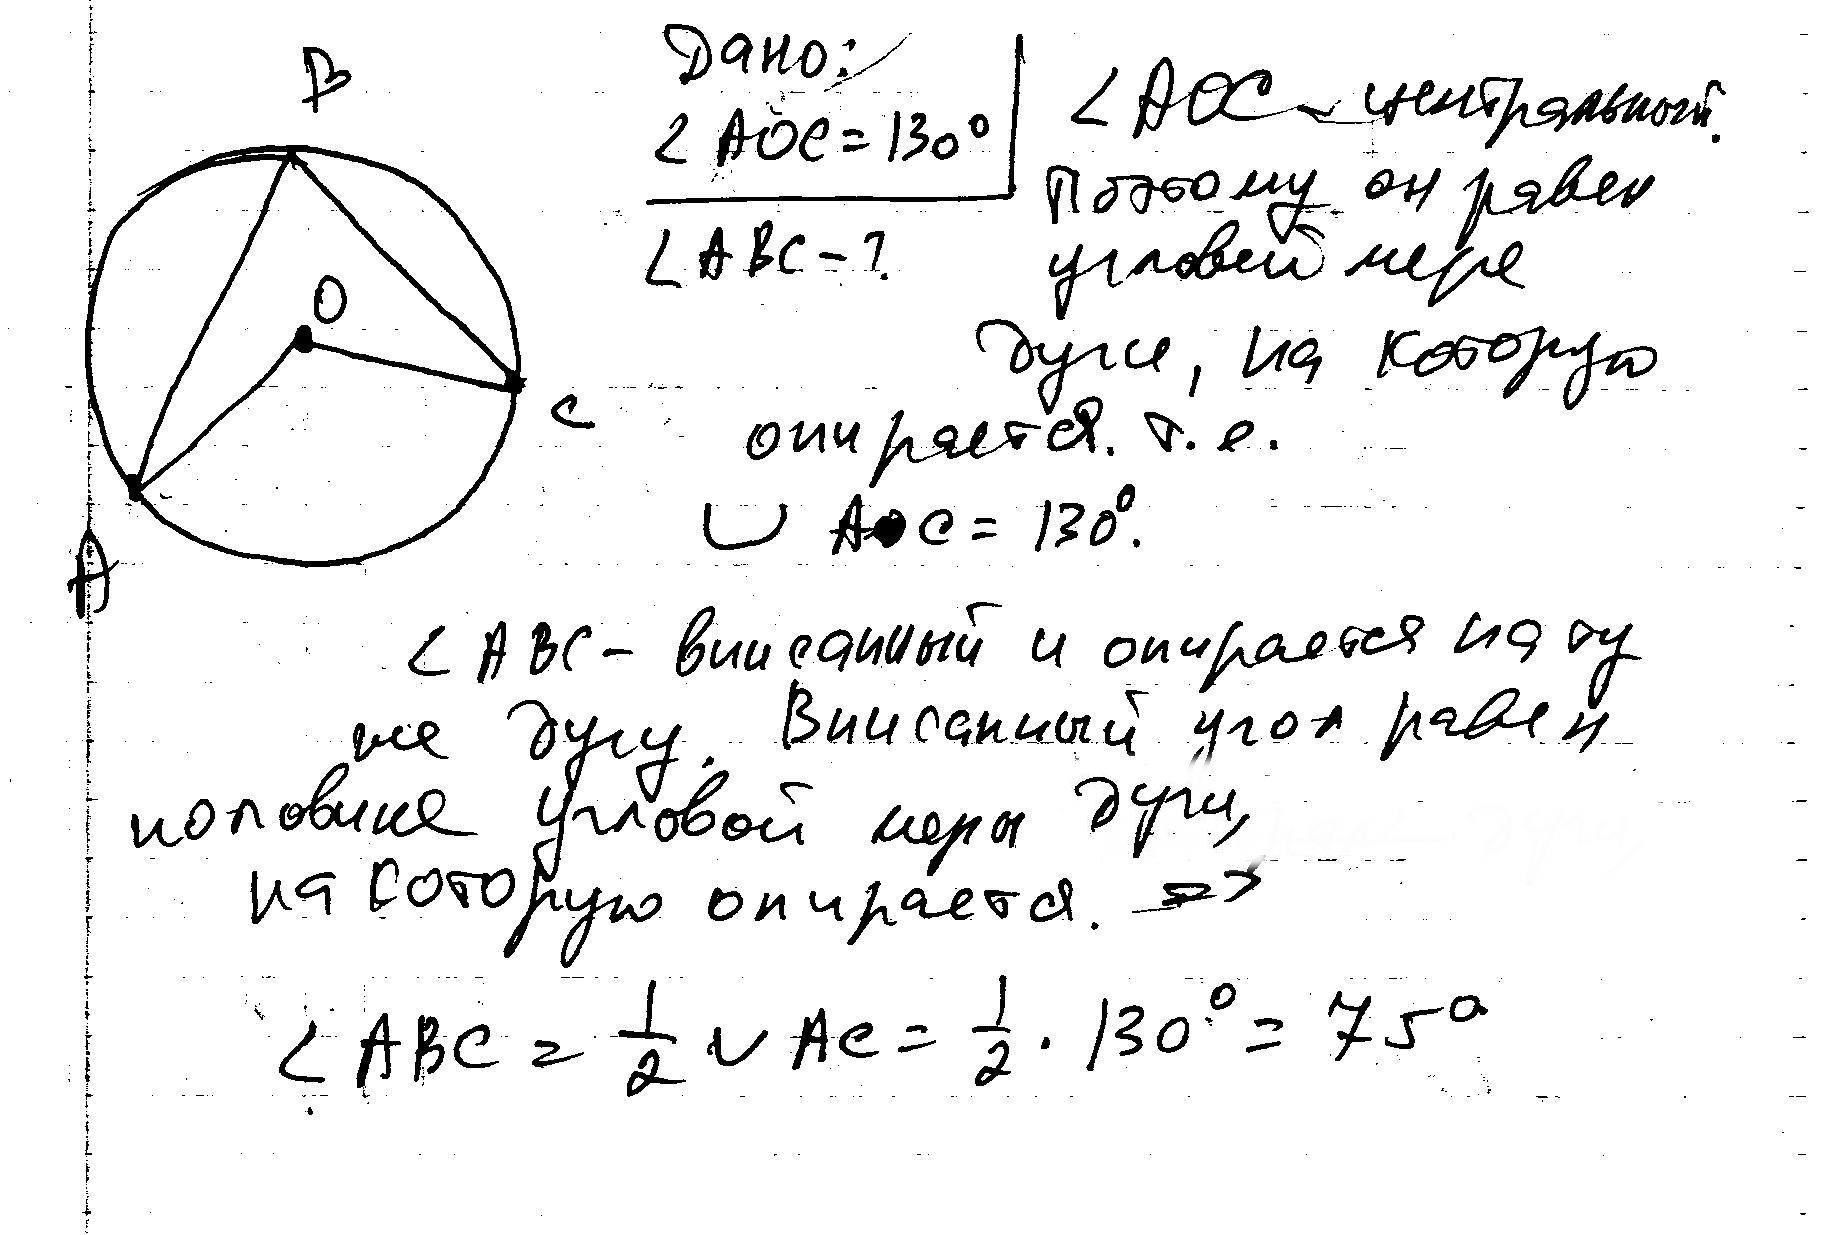 B
O
C
A
Дано:
∠AOC = 130°
∠ABC - ?
∠AOC - центральный.
Поэтому он равен
угловой мере
дуги, на которую
опирается. т.е.
∪ AC = 130°.
∠ABC - вписанный и опирается на ту
же дугу. Вписанный угол равен
половине угловой меры дуги,
на которую опирается. =>
∠ABC = 1/2 ∪ AC = 1/2 · 130° = 75°